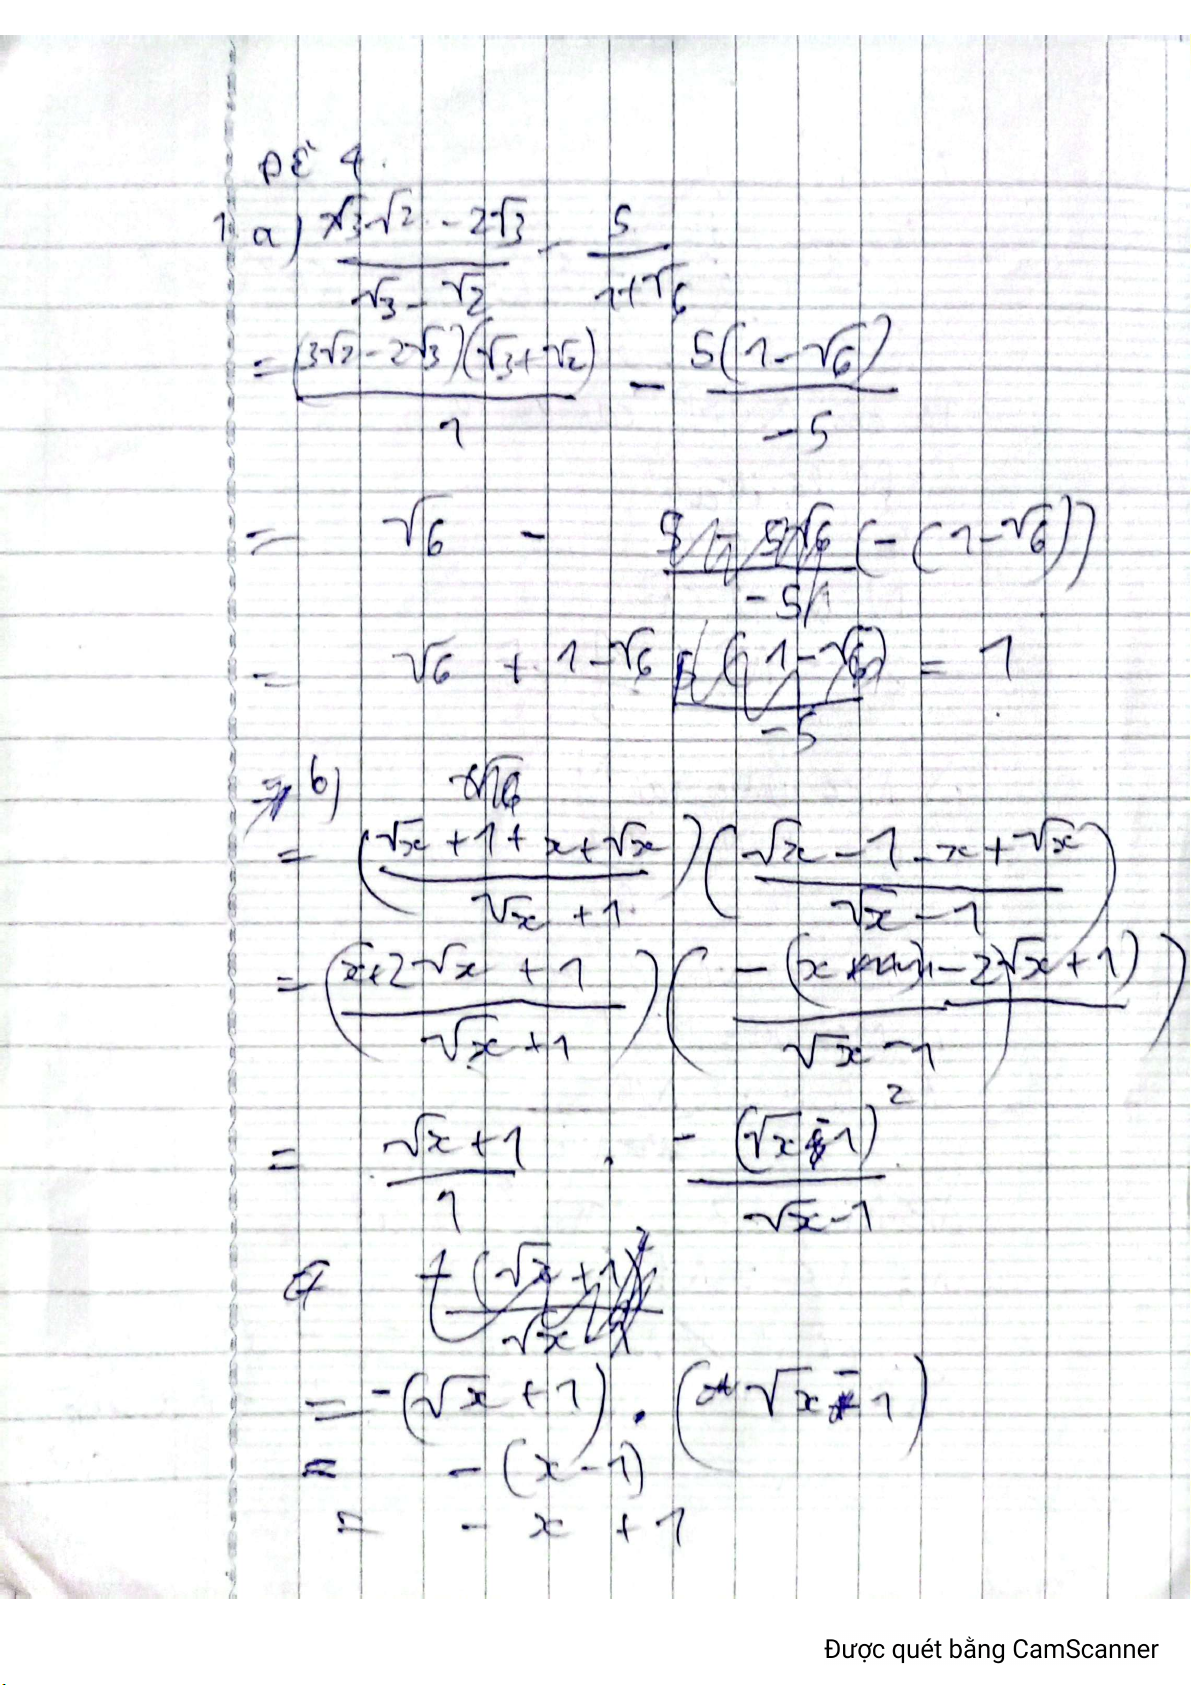 ĐỀ 4.
1. a) (3√2 - 2√3)/(√3 - √2) - 5/(1+√6)
= (3√2 - 2√3)(√3 + √2)/1 - 5(1 - √6)/-5
= √6 - (-(1-√6))
= √6 + 1 - √6 = 1
b)
= ((√x + 1 + x + √x)/(√x + 1)) ((√x - 1 - x + √x)/(√x - 1))
= ((x + 2√x + 1)/(√x + 1)) (-(x - 2√x + 1)/(√x - 1))
= (√x + 1)/1 . -(√x - 1)²/(√x - 1)
= -(√x + 1) . (√x - 1)
= -(x - 1)
= - x + 1
Được quét bằng CamScanner